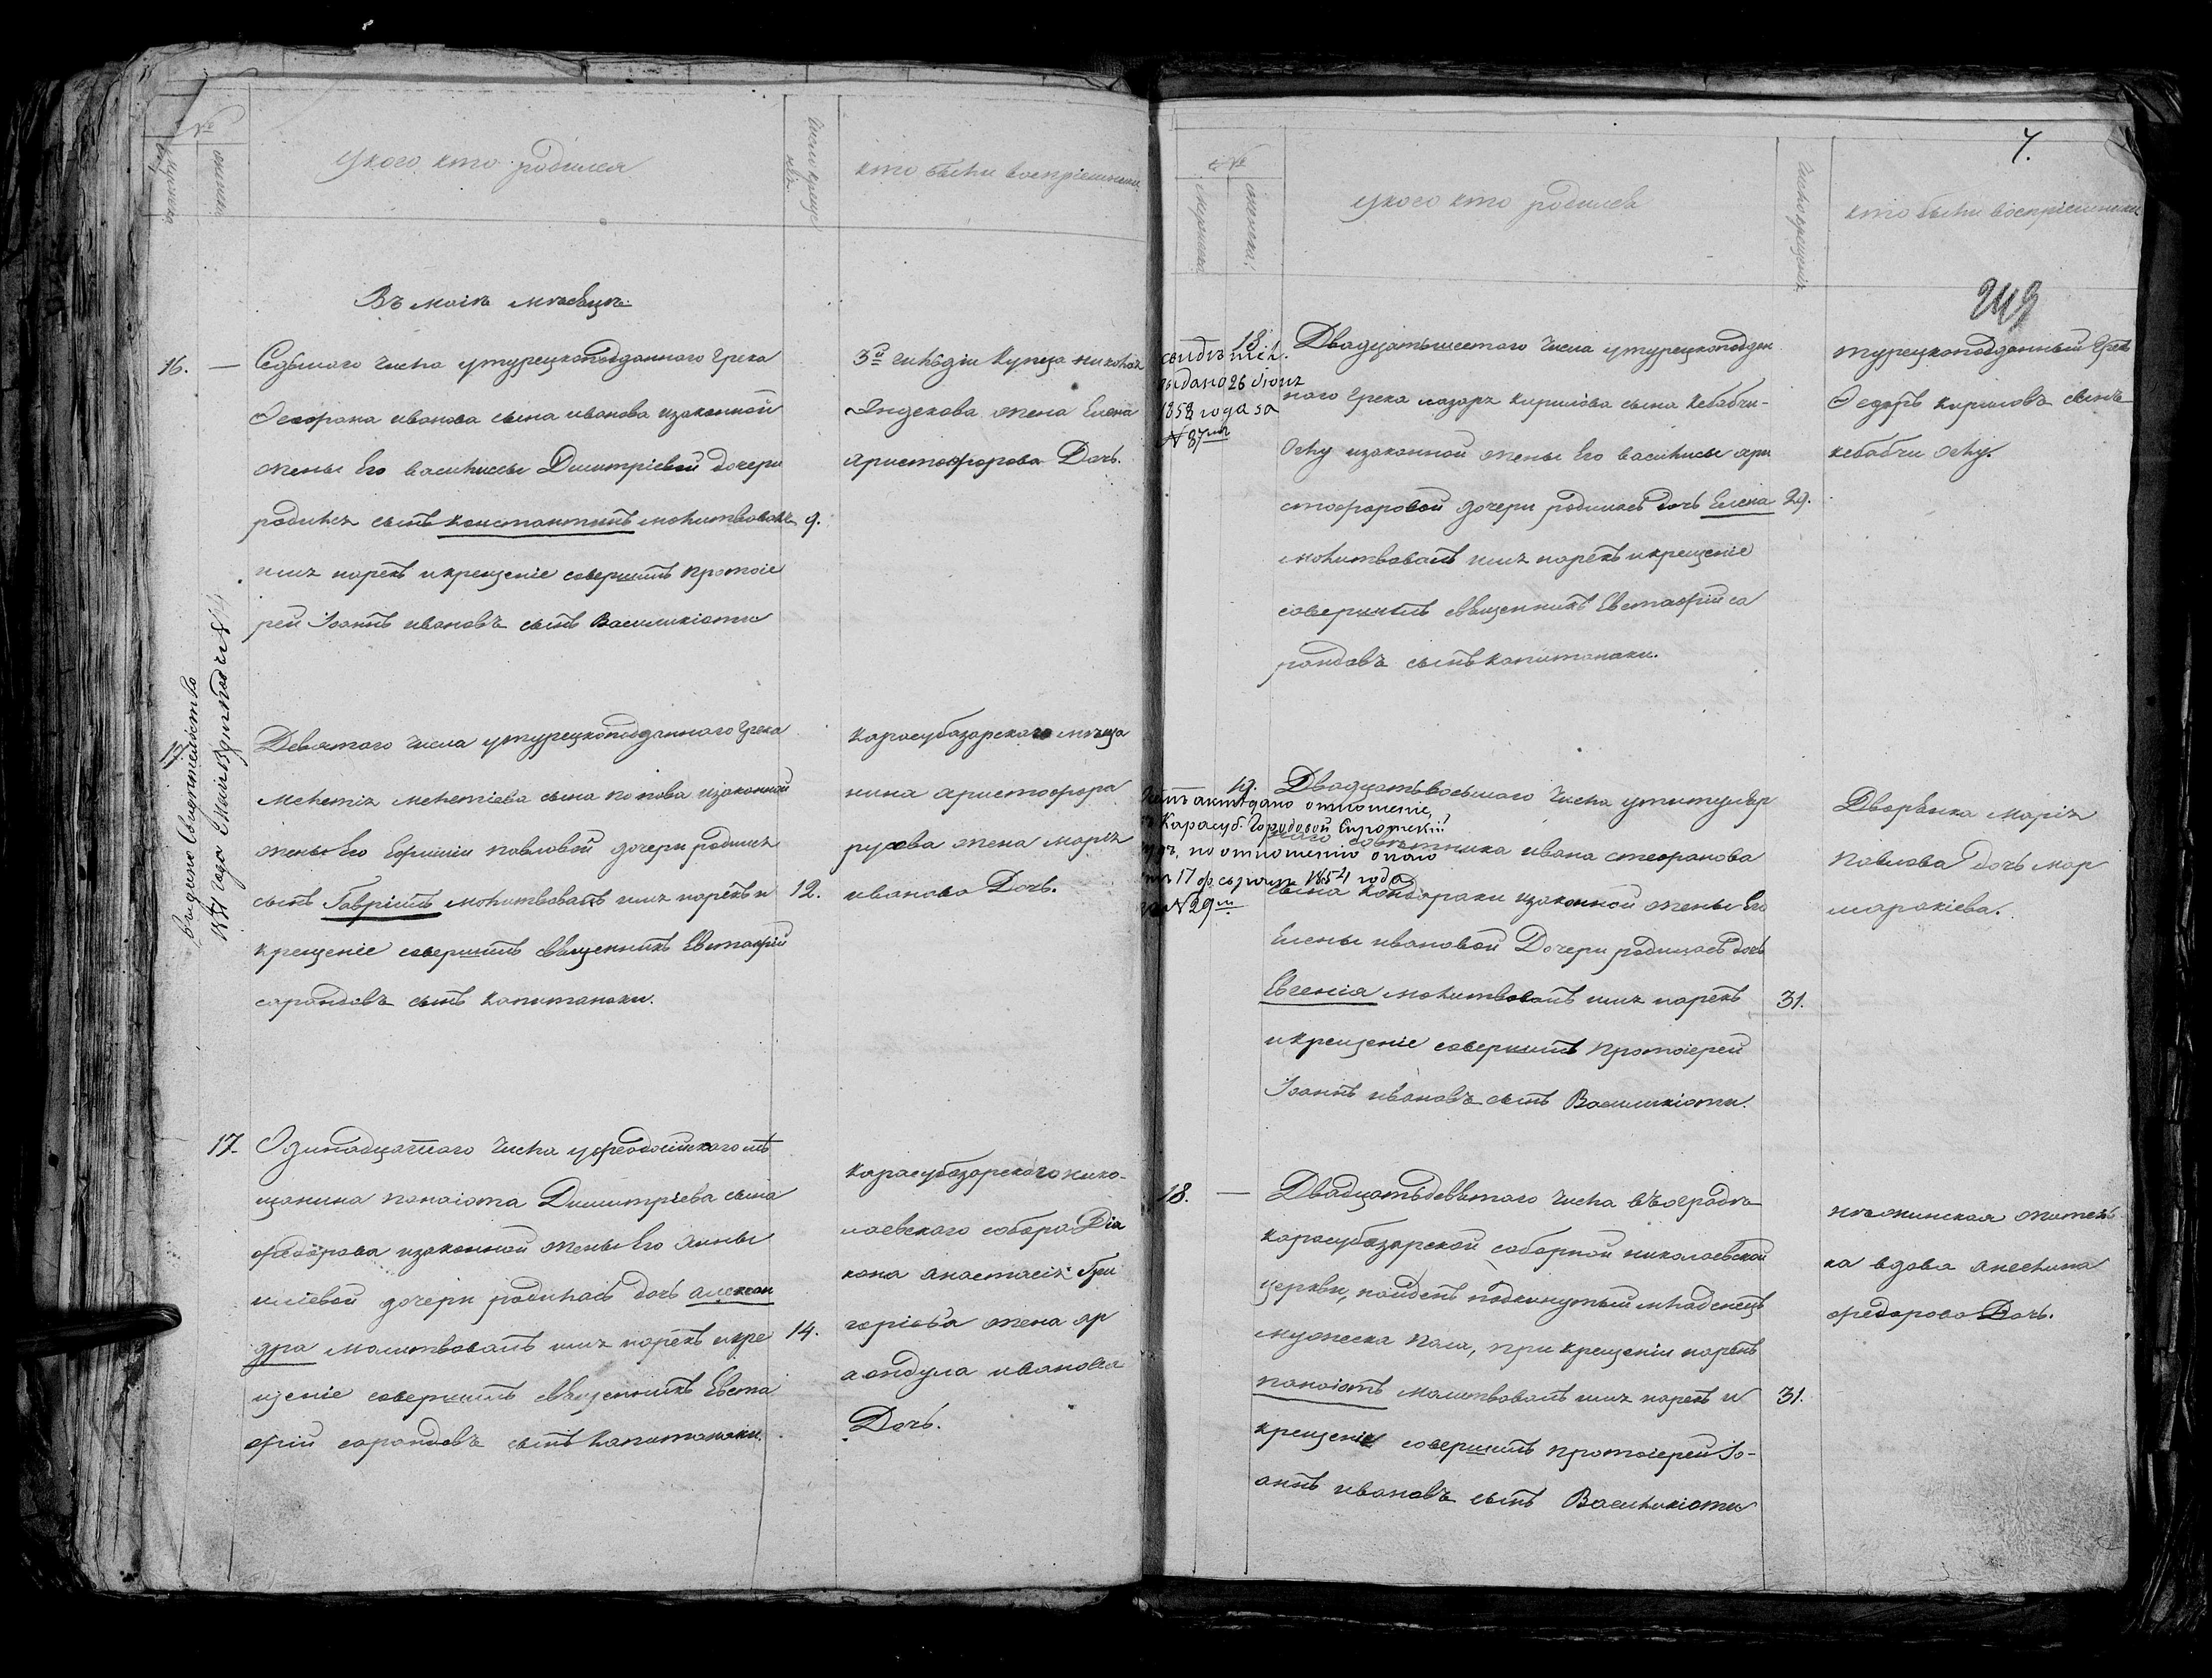 №
мужеска
женска
у кого кто родился
число креще
нія
кто были воспріемники
Въ маіѣ мѣсяцѣ
16. — Седьмого числа у турецкоподданного грека
Ѳеофана иванова сына иванова изаконной
жены Его василиссы Димитріевой дочери
родился сынъ константинъ молитвовалъ 9.
имя нарекъ и крещеніе совершилъ протоіе
рей Іоаннъ ивановъ сынъ Василикіоти
3й гильдіи купца николая
жена Елена
христофорова Дочь.
17.
выдано свидѣтельство
Девятого числа у турецкоподданного грека
мелетія мелетіева сына попова изаконной
жены Его Ефиміи павловой дочери родился
сынъ Гавріилъ молитвовалъ имя нарекъ и 12.
крещеніе совершилъ священникъ Евстафій
сарандовъ сынъ капитанаки.
карасубазарского мѣща
нина христофора
русова жена марія
иванова Дочь.
17. Одинадцатого числа у феодосійского мѣ
щанина панаіота Димитріева сына
федорова изаконной жены Его Анны
иліевой дочери родилась дочь алексан
дра молитвовалъ имя нарекъ и кре 14.
щеніе совершилъ священникъ Евста
фій сарандовъ сынъ капитанаки.
карасубазарского нико-
лаевского собора Діа
кона анастасія Гри
горіева жена
иванова
Дочь.
7.
№
мужеска
женска
у кого кто родился
число крещенія
кто были воспріемники
243
18. Двадцатьшестого числа у турецкоподдан
свидѣтел.
выдано 26 Іюня
1858 года за
№ 87мъ
ного грека лазаря кирилова сына кебабчи-
оглу изаконной жены Его василисы хри
стофоровой дочери родилась дочь Елена 29.
молитвовалъ имя нарекъ и крещеніе
совершилъ священникъ Евстафій са
рандовъ сынъ капитанаки.
турецкоподданный грекъ
Ѳедоръ кириловъ сынъ
кебабчи оглу.
19. Двадцатьвосьмого числа у титуляр
ного совѣтника ивана стефанова
дано отношеніе
Карасуб. Городовой Сиротскій
по отношенію оного
17 февраля 1854 года
№ 29м
сына кондораки изаконной жены Его
Елены ивановой Дочери родилась дочь
Евгенія молитвовалъ имя нарекъ 31.
и крещеніе совершилъ протоіерей
Іоаннъ ивановъ сынъ Василикіоти.
Дворянка марія
павлова дочь мар
маракіева.
18. — Двадцатьдевятого числа въ оградѣ
карасубазарской соборной николаевской
церкви, найденъ подкинутый младенецъ
мужеска пола, при крещеніи нарѣнъ
панаіотъ молитвовалъ имя нарекъ и 31.
крещеніе совершилъ протоіерей Іо-
аннъ ивановъ сынъ Василикіоти
нѣжинская житель
ка вдова ангелина
федорова Дочь.